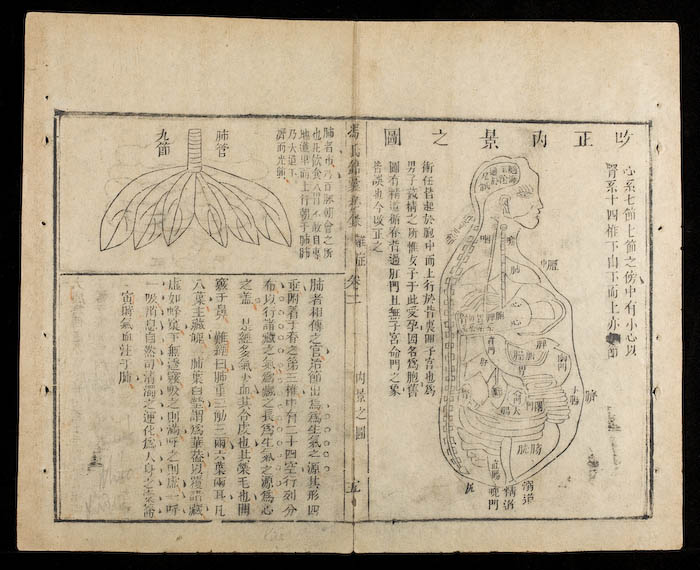 改正內景之圖
心系七節七節之傍中有小心以
腎系十四椎下由下而上亦七節
衝任皆起於胞中而上行於背裏即子宮也為
男子藏精之所惟女子于此受孕因名為胞舊
圖有精道循脊背過肛門且無子宮命門之象
皆誤也今改正之
髓海
喉
肺
心
膈膜
脾
胃
肝
膽
臍
大腸
小腸
膀胱
直腸
尻
溺道
精道
穀門
馮氏錦囊秘錄
雜症
卷二
內景之圖
五
肺管
九節
肺者市乃百脈朝會之所
也凡飲食入胃不敢自專
地道卑而上行朝于肺肺
乃天道下
濟而光明
肺者相傳之官治節出焉為生氣之源其形四
垂附著于脊之第三椎中有二十四空行列分
布以行諸臟之氣為臟之長為生氣之源為心
之蓋
竅于鼻
難經曰肺重三觔三兩六葉兩耳凡
八葉主藏魄
肺葉白瑩謂為華蓋以覆諸臟
虛如蜂窠下無透竅吸之則滿呼之則虛一呼
一吸消息自然司清濁之運化為人身之橐籥
寅時氣血注于肺